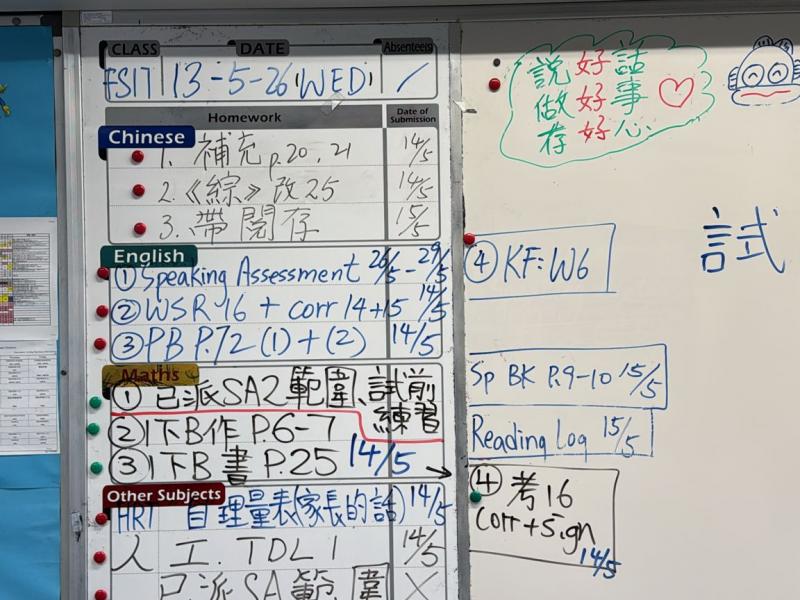 CLASS DATE Absentee(s)
13-5-26 (WED) /
Homework Date of Submission
Chinese
1. 補充 p.20, 21 14/5
2.《綜》改25 14/5
3. 帶閱存 15/5
English
① Speaking Assessment 26/5 - 29/5
② WSR 16 + corr 14+15 14/5
③ PB P.72 (1) + (2) 14/5
Maths
① 已派SA2範圍、試前練習
② 1下B作 P.6-7
③ 1下B書 P.25 14/5
Other Subjects
HRT 自理量表(家長的話) 14/5
人工.TDL1 14/5
已派SA範圍 X
說好話
做好事
存好心
試
④ KF: W6
Sp BK P.9-10 15/5
Reading Log 15/5
④ 考16
corr + sign
14/5